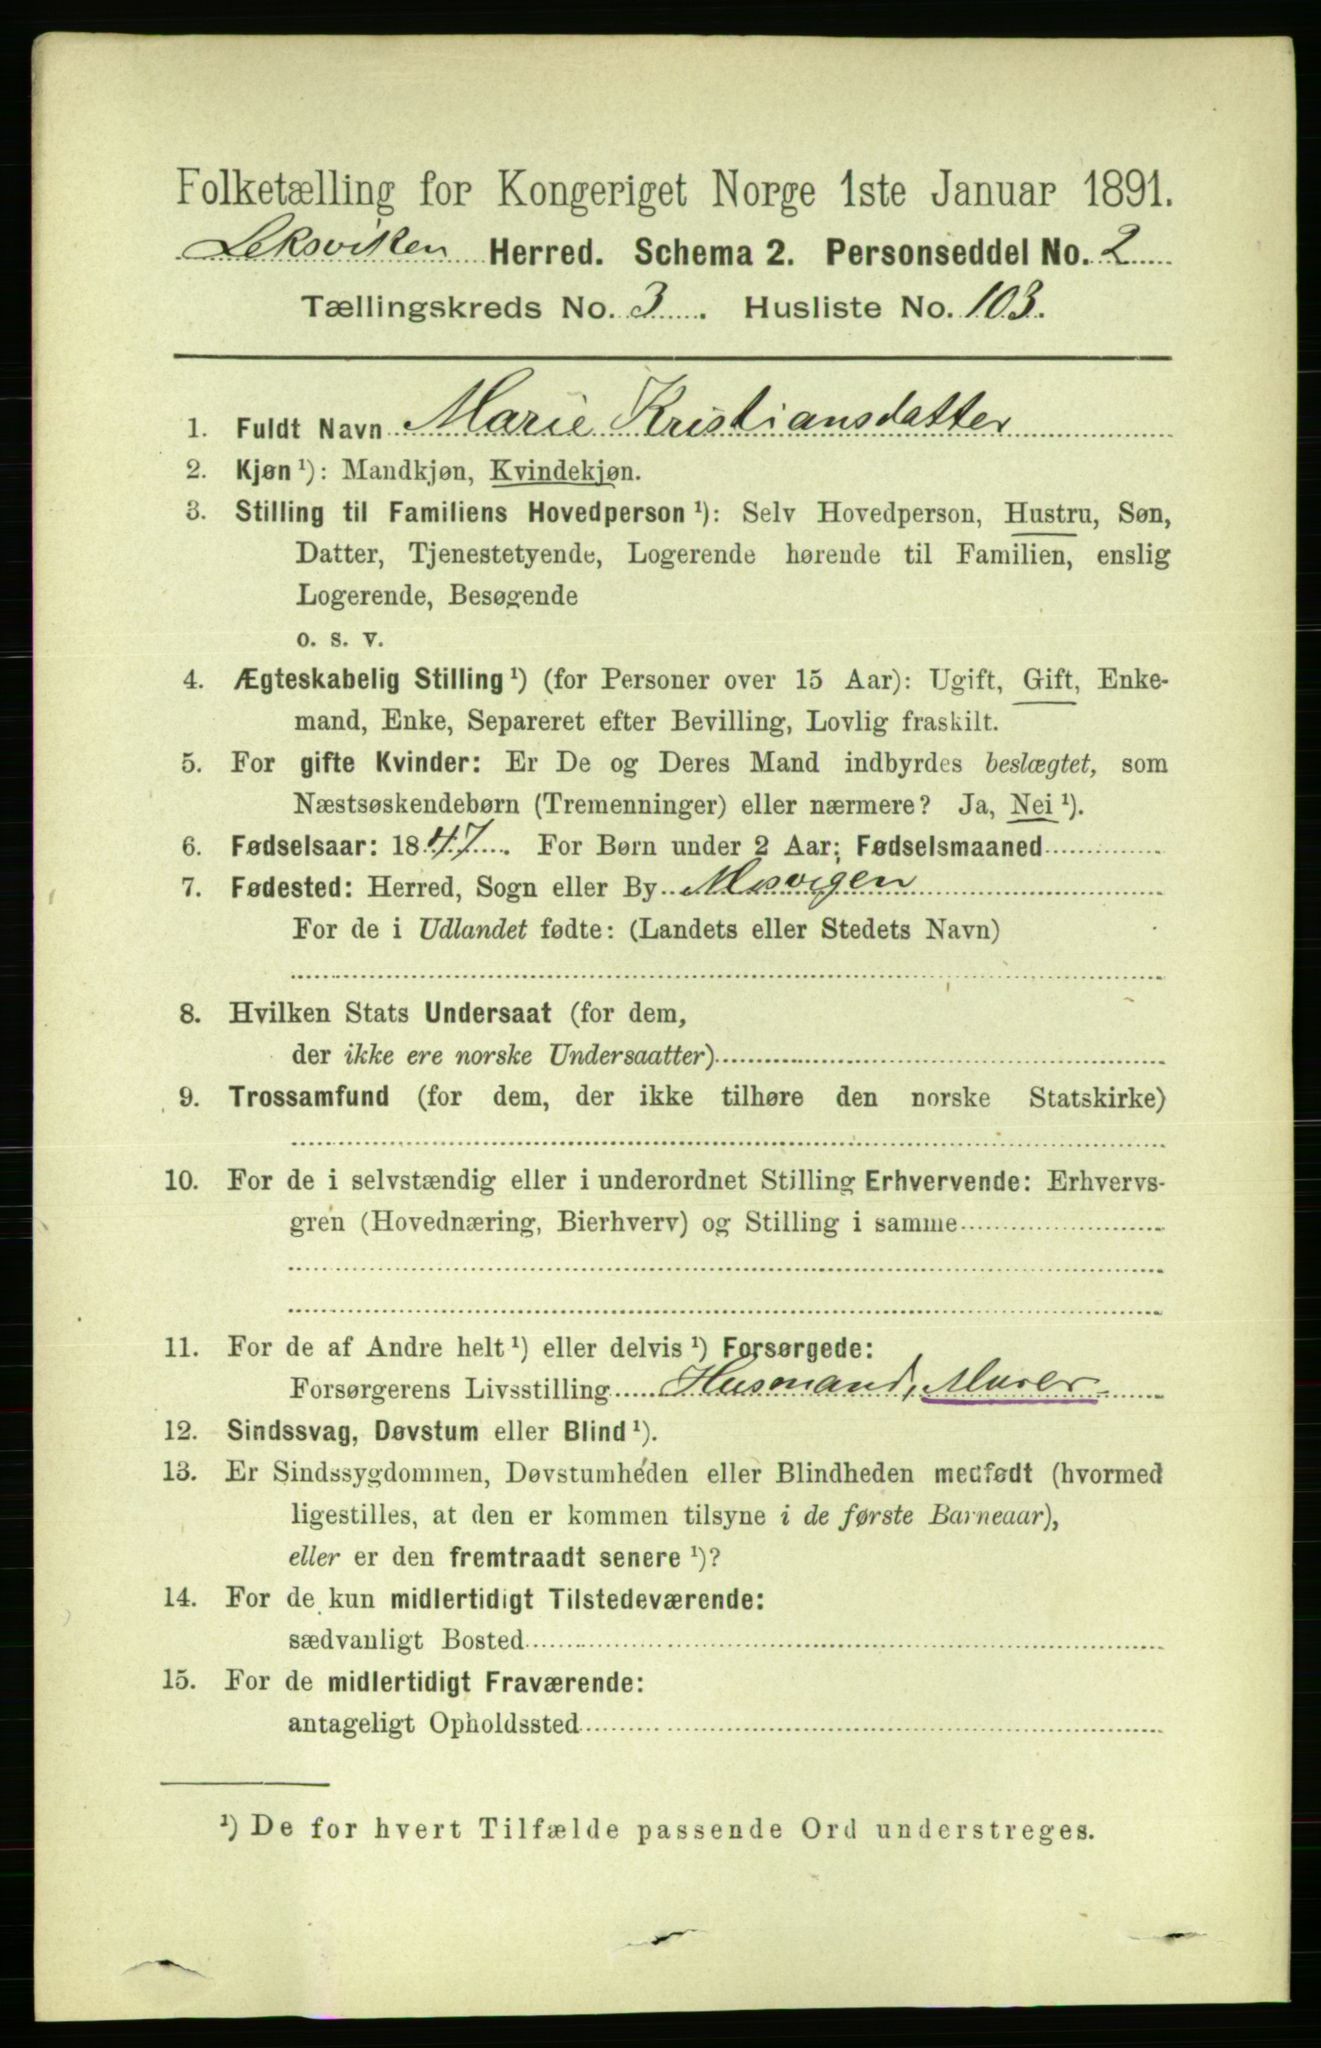 Folketælling for Kongeriget Norge 1ste Januar 1891.
Leksviken Herred. Schema 2. Personseddel No. 2
Tællingskreds No. 3. Husliste No. 103.
1. Fuldt Navn Marie Kristiansdatter
2. Kjøn ¹): Mandkjøn, Kvindekjøn.
3. Stilling til Familiens Hovedperson ¹): Selv Hovedperson, Hustru, Søn,
Datter, Tjenestetyende, Logerende hørende til Familien, enslig
Logerende, Besøgende
o. s. v.
4. Ægteskabelig Stilling ¹) (for Personer over 15 Aar): Ugift, Gift, Enke-
mand, Enke, Separeret efter Bevilling, Lovlig fraskilt.
5. For gifte Kvinder: Er De og Deres Mand indbyrdes beslægtet, som
Næstsøskendebørn (Tremenninger) eller nærmere? Ja, Nei ¹).
6. Fødselsaar: 1847. For Børn under 2 Aar: Fødselsmaaned
7. Fødested: Herred, Sogn eller By Mosvigen
For de i Udlandet fødte: (Landets eller Stedets Navn)
8. Hvilken Stats Undersaat (for dem,
der ikke ere norske Undersaatter)
9. Trossamfund (for dem, der ikke tilhøre den norske Statskirke)
10. For de i selvstændig eller i underordnet Stilling Erhvervende: Erhvervs-
gren (Hovednæring, Bierhverv) og Stilling i samme
11. For de af Andre helt ¹) eller delvis ¹) Forsørgede:
Forsørgerens Livsstilling Husmand, Murer
12. Sindssvag, Døvstum eller Blind ¹).
13. Er Sindssygdommen, Døvstumheden eller Blindheden medfødt (hvormed
ligestilles, at den er kommen tilsyne i de første Barneaar),
eller er den fremtraadt senere ¹)?
14. For de kun midlertidigt Tilstedeværende:
sædvanligt Bosted
15. For de midlertidigt Fraværende:
antageligt Opholdssted
¹) De for hvert Tilfælde passende Ord understreges.